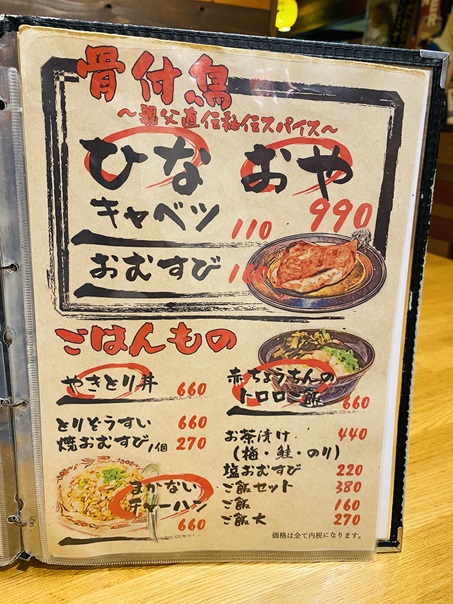 骨付鳥
～親父直伝秘伝スパイス～
ひな おや
990
キャベツ 110
おむすび
ごはんもの
やきとり丼 660
とりぞうすい 660
焼おむすび/1個 270
まかない
チャーハン
660
赤ちょうちんの
トロロご飯 660
お茶漬け 440
(梅・鮭・のり)
塩おむすび 220
ご飯セット 380
ご飯 160
ご飯大 270
価格は全て内税になります。